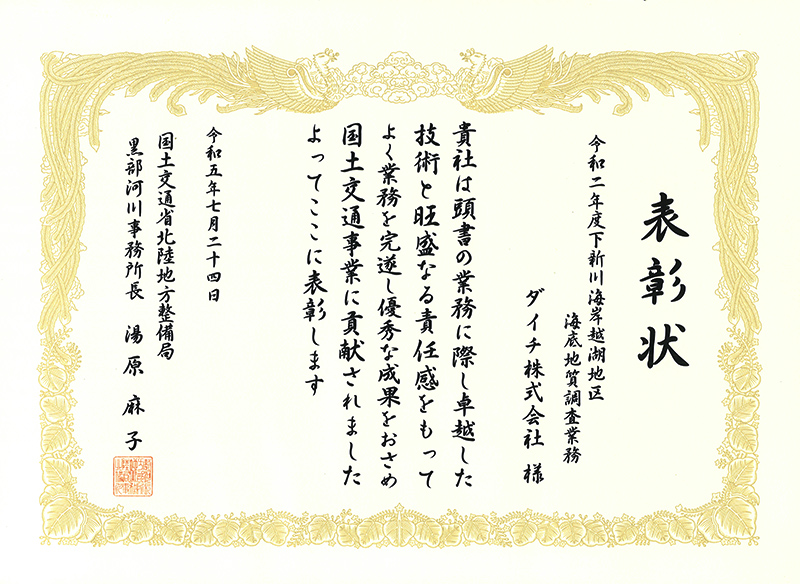 表彰状
令和二年度下新川海岸越湖地区
海底地質調査業務
ダイチ株式会社 様
貴社は頭書の業務に際し卓越した
技術と旺盛なる責任感をもって
よく業務を完遂し優秀な成果をおさめ
国土交通事業に貢献されました
よってここに表彰します
令和五年七月二十四日
国土交通省北陸地方整備局
黒部河川事務所長 湯原麻子